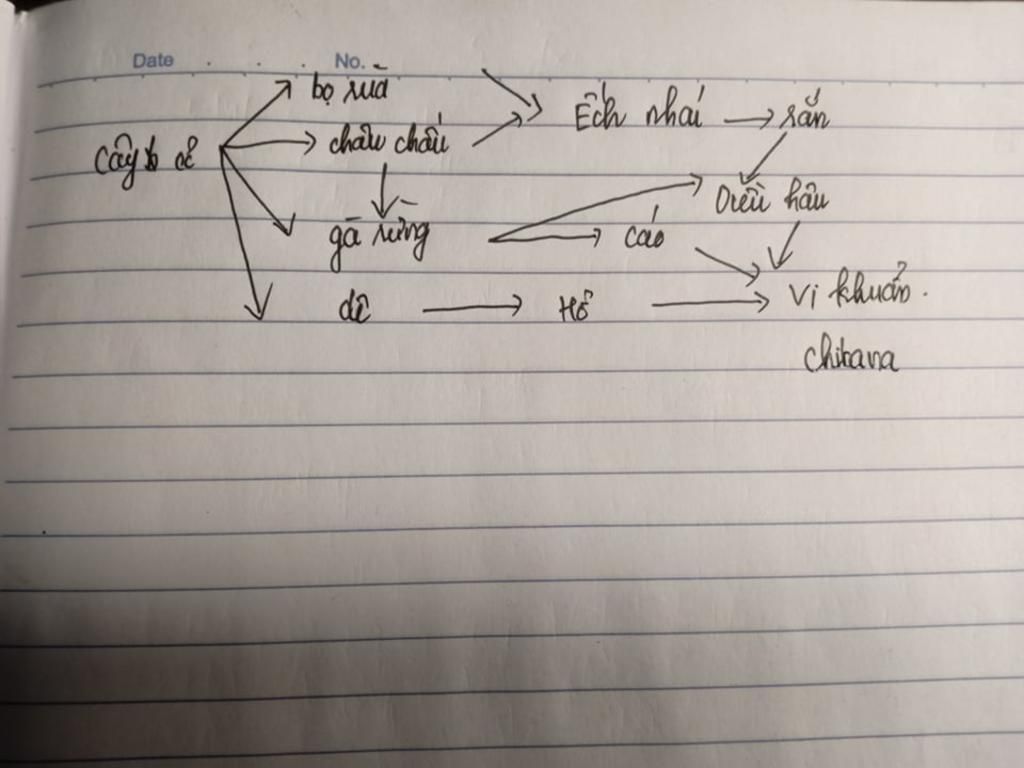 Date No.
bọ rùa
Ếch nhái → rắn
Cây cỏ châu chấu
Diều hâu
gà rừng cáo
dê → Hổ → Vi khuẩn.
Chitana